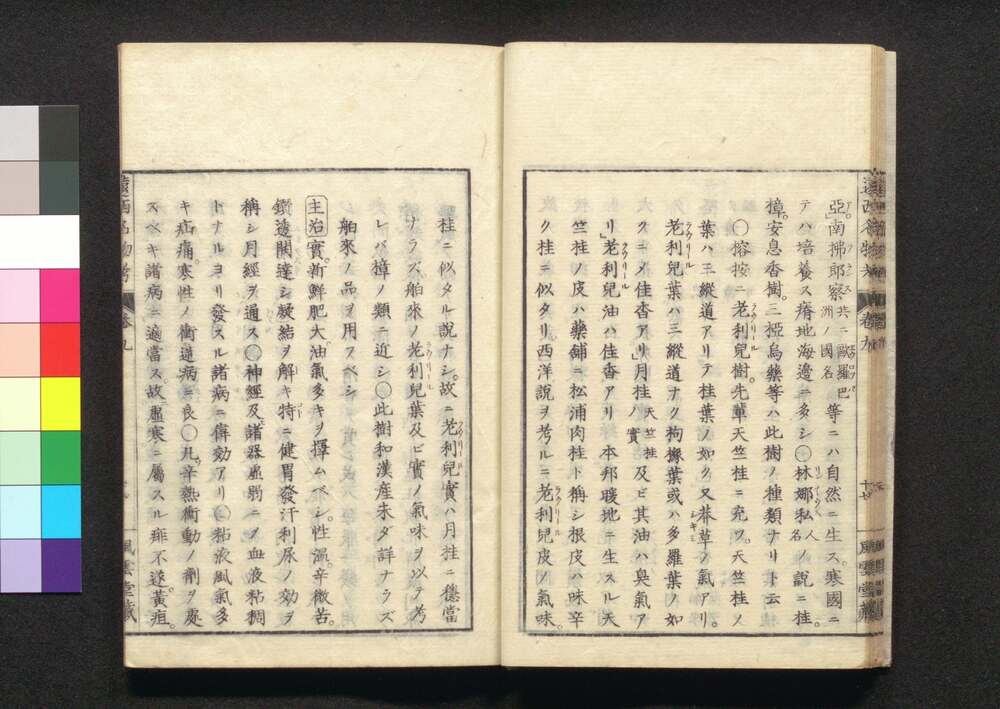 遠西名物考 卷九 十七 風雲堂藏
亞」南拂郎察共ニ歐羅巴洲ノ國名等ニハ自然ニ生ス。寒國ニ
テハ培養ス瘠地海邊ニ多シ〇林娜私人名ノ說ニ桂。
樟。安息香樹。三椏烏藥等ハ此樹ノ種類ナリト云
〇榕按ニ老利兒樹。先輩天竺桂ニ充ツ。天竺桂ノ
葉ハ三縱道アリテ桂葉ノ如ク。又莽草ノ氣アリ。
老利兒葉ハ三縱道ナク枸櫞葉或ハ多羅葉ノ如
クニメ佳香アリ」月桂天竺桂ノ實及ビ其油ハ臭氣ア
リ」老利兒油ハ佳香アリ本邦暖地ニ生スル天
竺桂ノ皮ハ藥鋪ニ松浦肉桂ト稱シ根皮ハ味辛
ク桂ニ似タリ。西洋說ヲ考ルニ老利兒皮ノ氣味。
桂ニ似タル說ナシ。故ニ老利兒實ハ月桂ニ穩當
ナラズ。舶來ノ老利兒葉及ビ實ノ氣味ヲ以テ考
レバ樟ノ類ニ近シ〇此樹和漢產未ダ詳ナラズ
舶來ノ品ヲ用フベシ
主治 實。新鮮肥大。油氣多キヲ擇ムベシ。性溫。辛微苦。
鑽透開達シ凝結ヲ解キ特ニ健胃發汗利尿ノ効ヲ
稱シ月經ヲ通ス〇神經及諸器虛弱ニメ血液粘稠
トナルヨリ發スル諸病ニ偉効アリ〇粘液風氣多
キ疝痛。寒性ノ衝逆病ニ良〇凡辛熱衝動ノ劑ヲ處
スベキ諸病ニ適當ス。故虛寒ニ屬スル痱不遂。黃疸。
遠西名物考 卷九 風雲堂藏